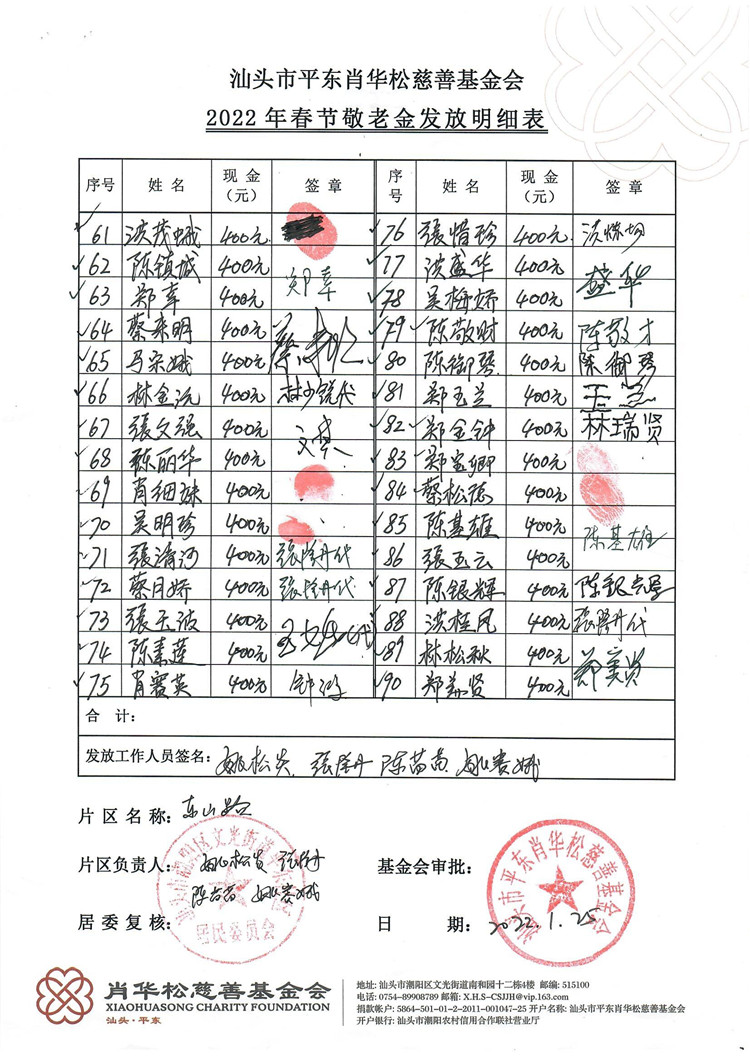 汕头市平东肖华松慈善基金会
2022 年春节敬老金发放明细表
序号 姓 名 现 金（元） 签 章 序号 姓 名 现 金（元） 签 章
61 洪茂娥 400元 76 張惜珍 400元
62 陈镇城 400元 77 洪盛华 400元 盛华
63 郑辜 400元 郑辜 78 吴梅娇 400元
64 蔡来明 400元 79 陈敬财 400元 陈敬才
65 马宋娥 400元 80 陈御琴 400元 陈御琴
66 林金沅 400元 林少锐代 81 郑玉兰 400元 玉兰
67 張文强 400元 82 郑金钟 400元 林瑞贤
68 陈丽华 400元 83 郑宝卿 400元
69 肖细妹 400元 84 蔡松德 400元
70 吴明珍 400元 85 陈基雄 400元 陈基雄
71 張清河 400元 86 張玉云 400元
72 蔡月娇 400元 87 陈银辉 400元
73 張玉波 400元 88 洪桂凤 400元
74 陈素莲 400元 89 林松秋 400元
75 肖赛英 400元 90 郑 贤 400元
合 计:
发放工作人员签名: 姚松炎 陈苗苗 姚赛娥
片 区 名 称: 东山路
片区负责人: 姚松炎
基金会审批:
姚赛娥
居 委 复 核:
日 期: 2022.1.25
居民委员会
汕头市平东肖华松慈善基金会
肖华松慈善基金会
XIAOHUASONG CHARITY FOUNDATION
汕头·平东
地址: 汕头市潮阳区文光街道南和园十二栋4楼 邮编: 515100
电话: 0754-89908789 邮箱: X.H.S-CSJJH@vip.163.com
捐款帐户: 5864-501-01-2-2011-001047-25 开户名称: 汕头市平东肖华松慈善基金会
开户银行: 汕头市潮阳农村信用合作联社营业厅